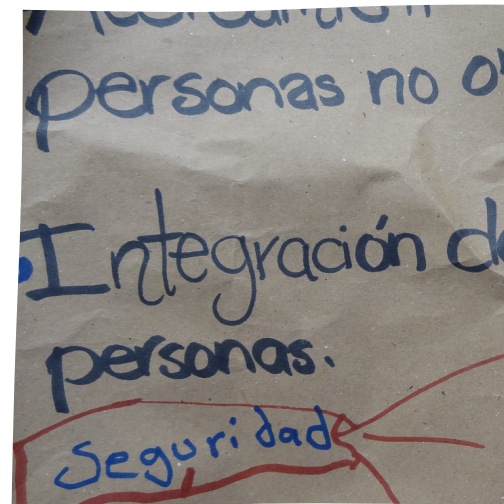 personas no
Integración
personas.
Seguridad